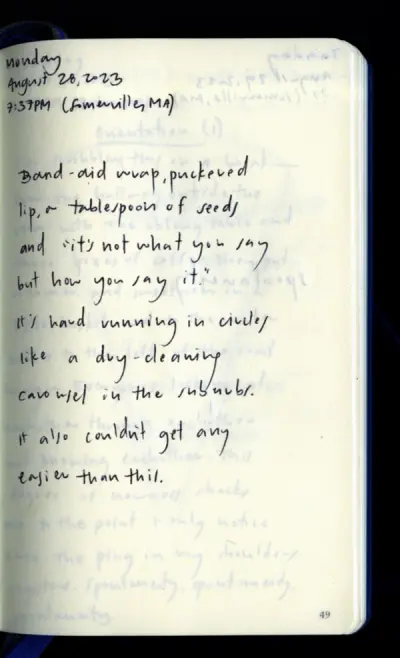 Monday
August 28, 2023
7:37PM (Somerville, MA)
Band-aid wrap, puckered
lip, a tablespoon of seeds
and "it's not what you say
but how you say it."
It's hard running in circles
like a dry-cleaning
carousel in the suburbs.
It also couldn't get any
easier than this.
49